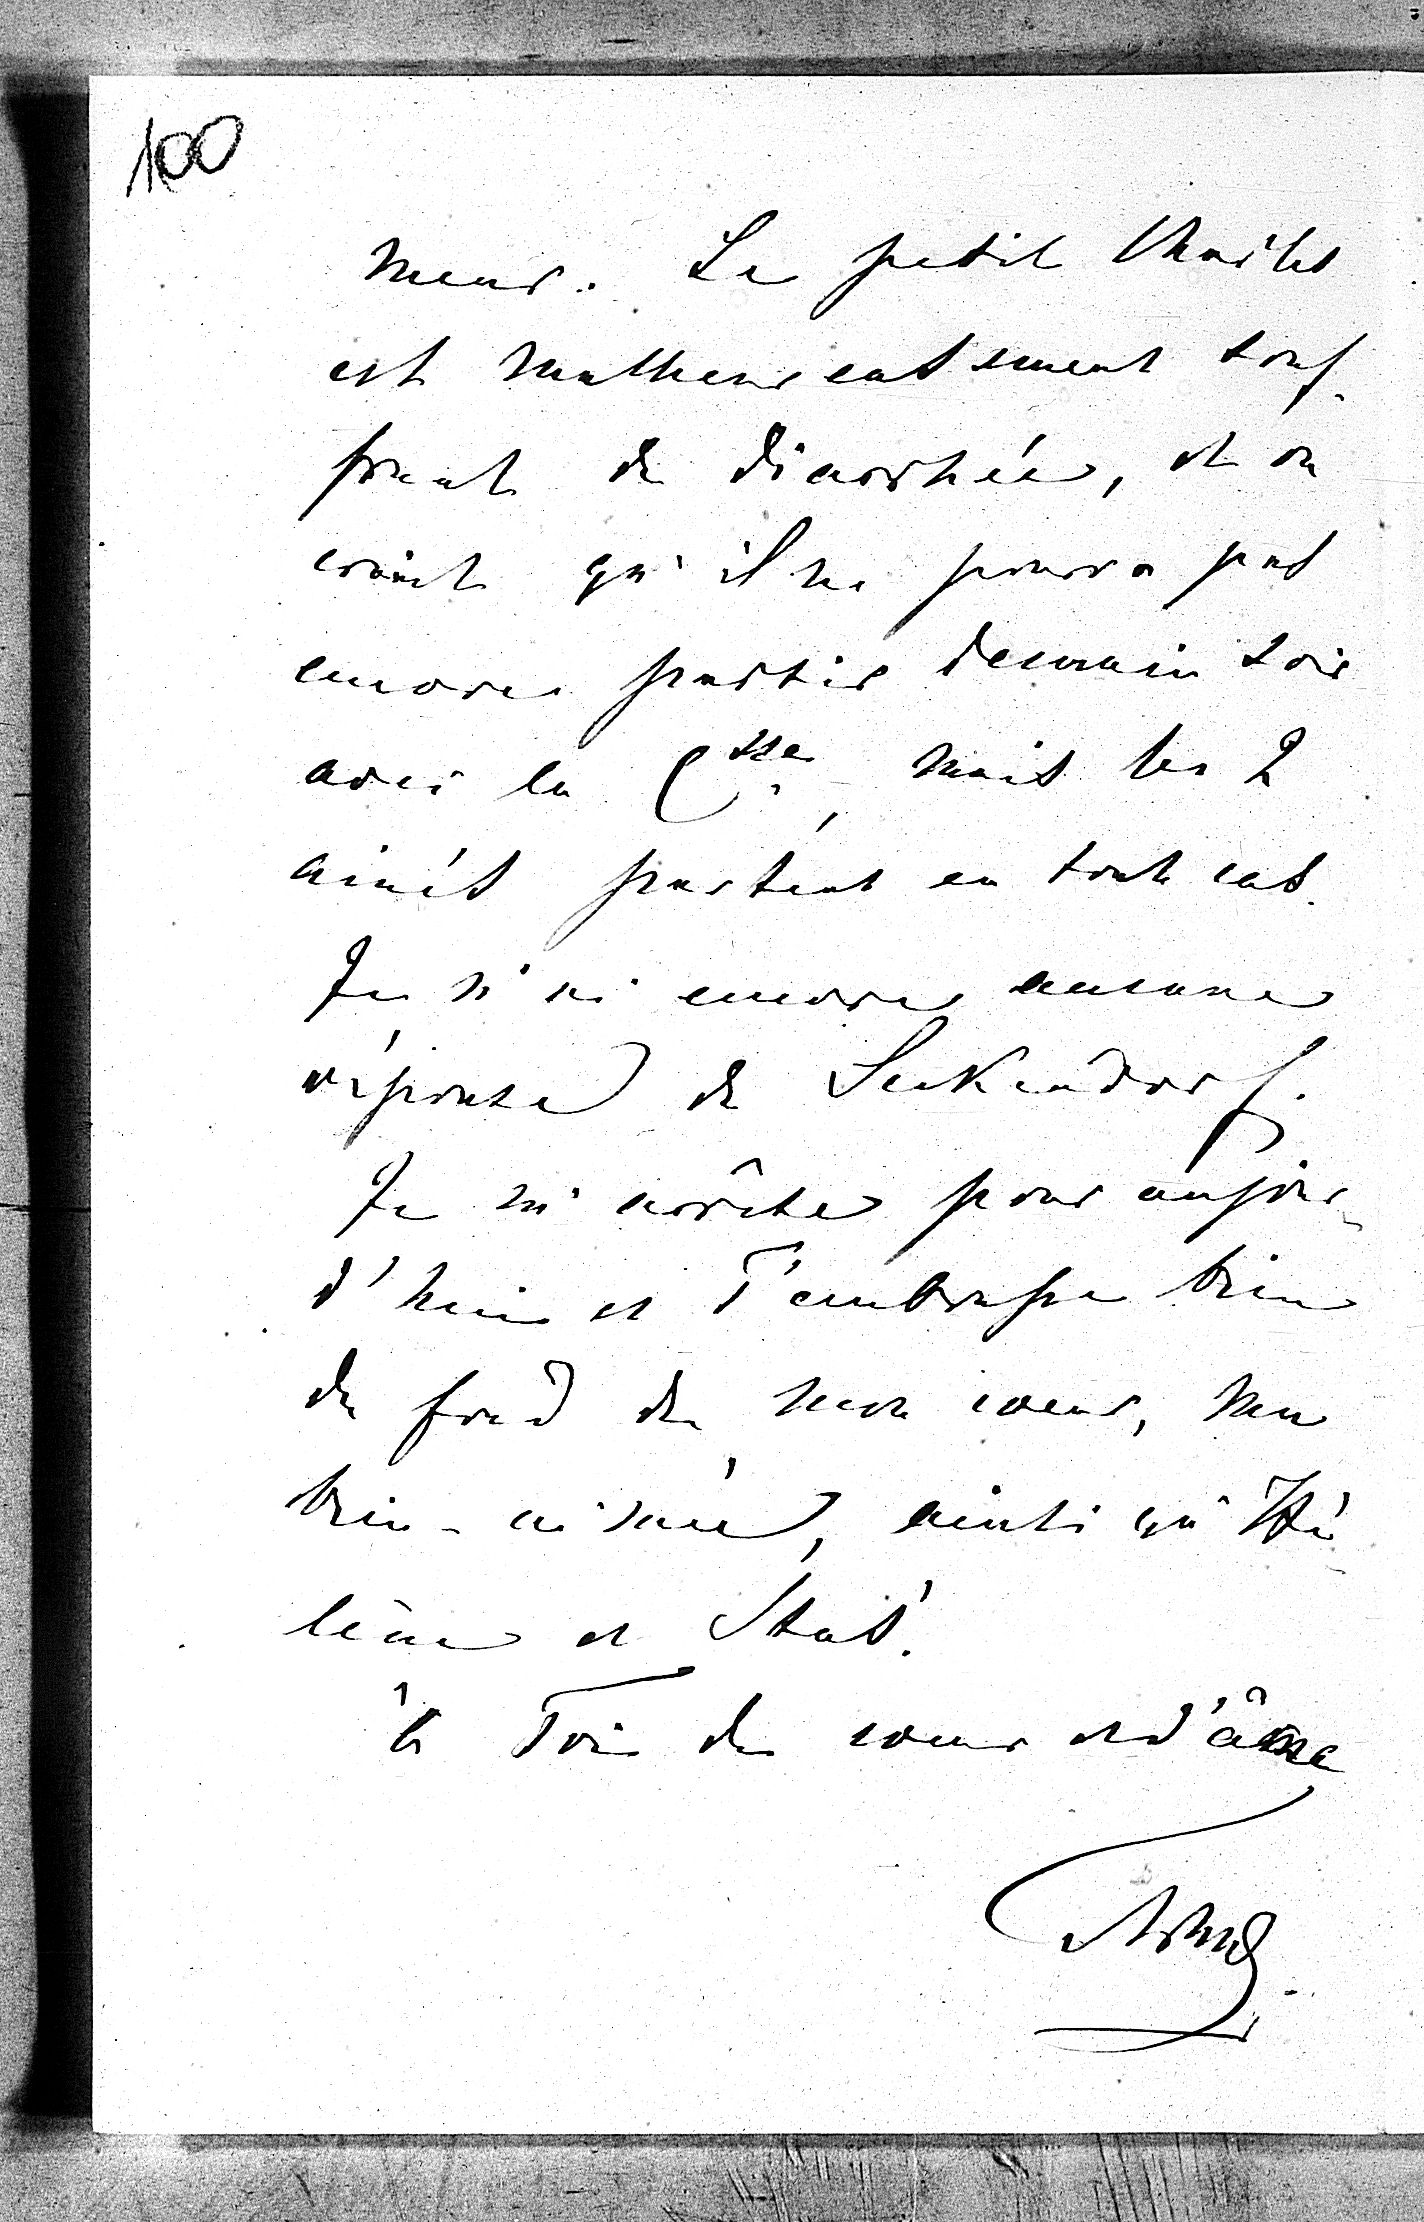 100
meur. Le petit Charles
est malheureusement souf-
frant de diarrhée, et on
craint qu'il ne pourra pas
encore partir demain soir
avec la Csse, mais les 2
ainés partent en tout cas.
Je n'ai encore aucune
réponse de Seckendorf.
Je m'arrête pour aujour-
d'hui et T'embrasse bien
du fond de mon coeur, ma
bien-aimée, ainsi qu'Hé-
lène et Stas'.
à Toi de coeur et d'âme